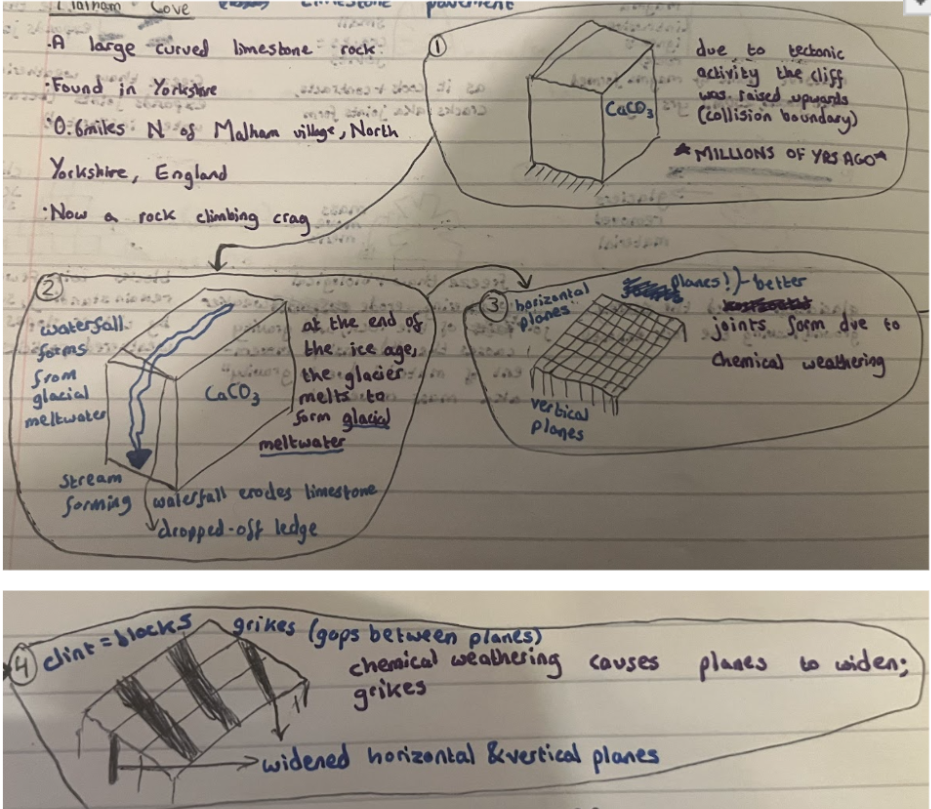 Malham Cove Limestone pavement
·A large curved limestone rock
·Found in Yorkshire
·0.6miles N of Malham village, North
Yorkshire, England
·Now a rock climbing crag
1
CaCO3
due to tectonic
activity the cliff
was raised upwards
(collision boundary)
*MILLIONS OF YRS AGO*
2
waterfall
forms
from
glacial
meltwater
CaCO3
at the end of
the ice age,
the glacier
melts to
form glacial
meltwater
stream
forming
waterfall erodes limestone
dropped-off ledge
3
horizontal
planes
vertical
planes
planes!)-better
joints form due to
chemical weathering
4
clint = blocks
grikes (gaps between planes)
chemical weathering causes planes to widen;
grikes
widened horizontal & vertical planes